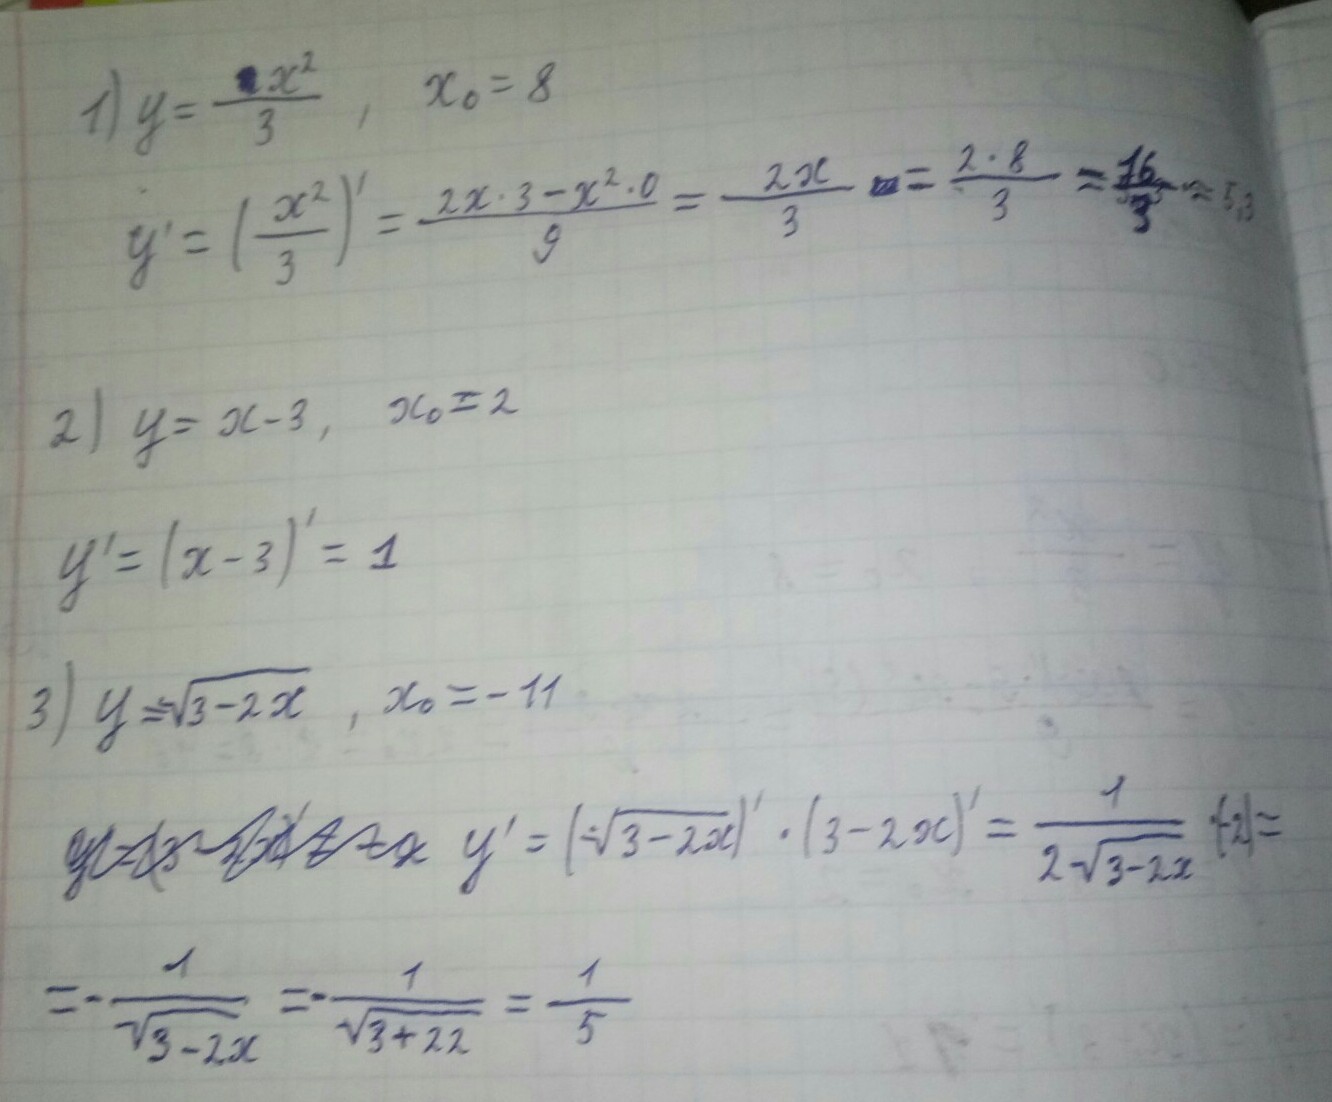 1) y = x²/3 , x₀ = 8
y' = (x²/3)' = (2x · 3 − x² · 0)/9 = 2x/3 = (2 · 8)/3 = 16/3 ≈ 5,3
2) y = x − 3, x₀ = 2
y' = (x − 3)' = 1
3) y = √(3 − 2x) , x₀ = −11
y' = (√(3 − 2x))' · (3 − 2x)' = 1/(2√(3 − 2x)) · (−2) =
= − 1/√(3 − 2x) = − 1/√(3 + 22) = 1/5